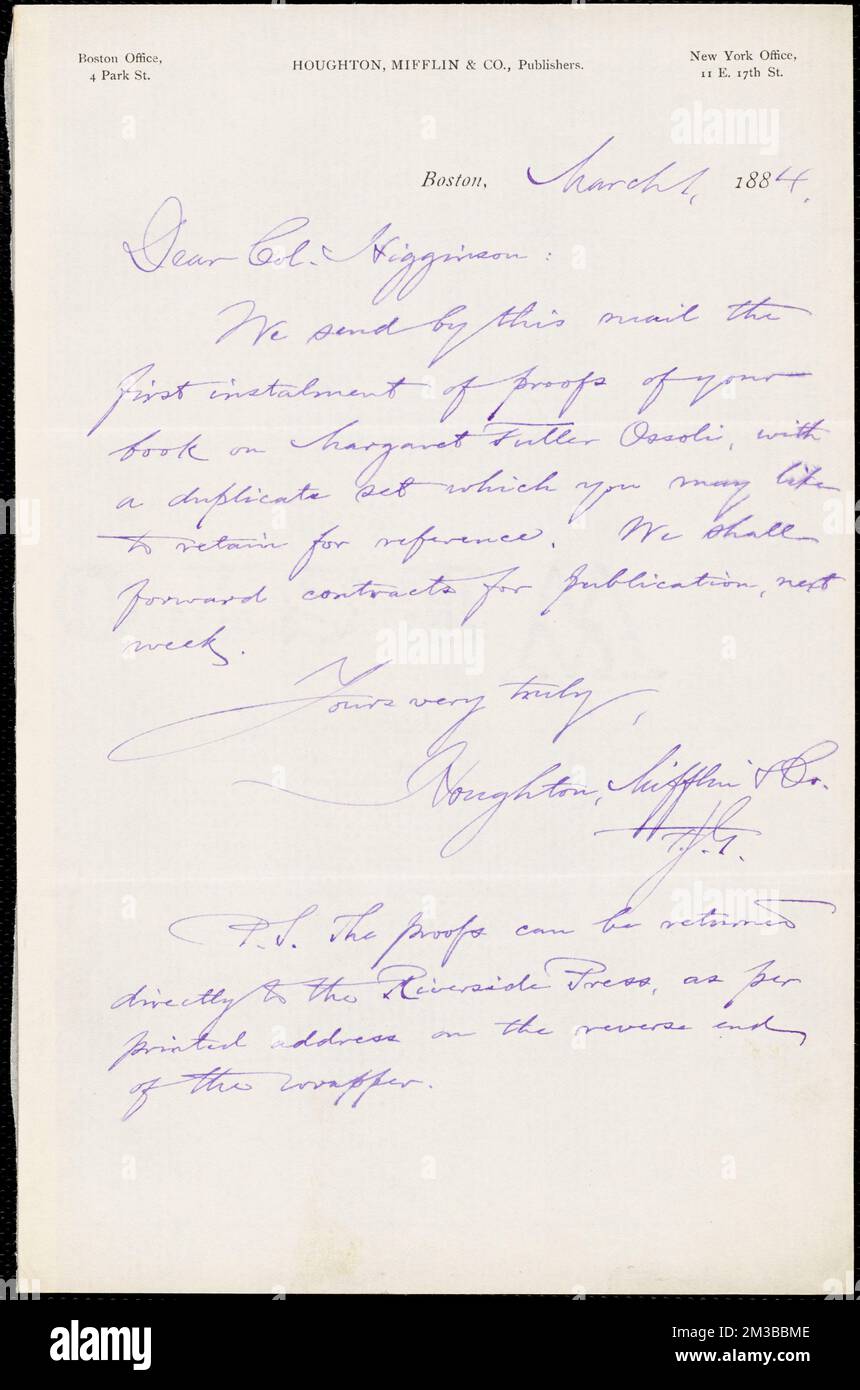 Boston Office,
4 Park St.
HOUGHTON, MIFFLIN & CO., Publishers.
New York Office,
11 E. 17th St.
Boston, March 1, 1884.
Dear Col. Higginson:
We send by this mail the
first instalment of proofs of your
book on Margaret Fuller Ossoli, with
a duplicate set which you may like
to retain for reference. We shall
forward contracts for publication, next
week.
Yours very truly,
Houghton, Mifflin & Co.
P.S. The proofs can be returned
directly to the Riverside Press, as per
printed address on the reverse end
of the wrapper.
alamy
Image ID: 2M3BBME
www.alamy.com